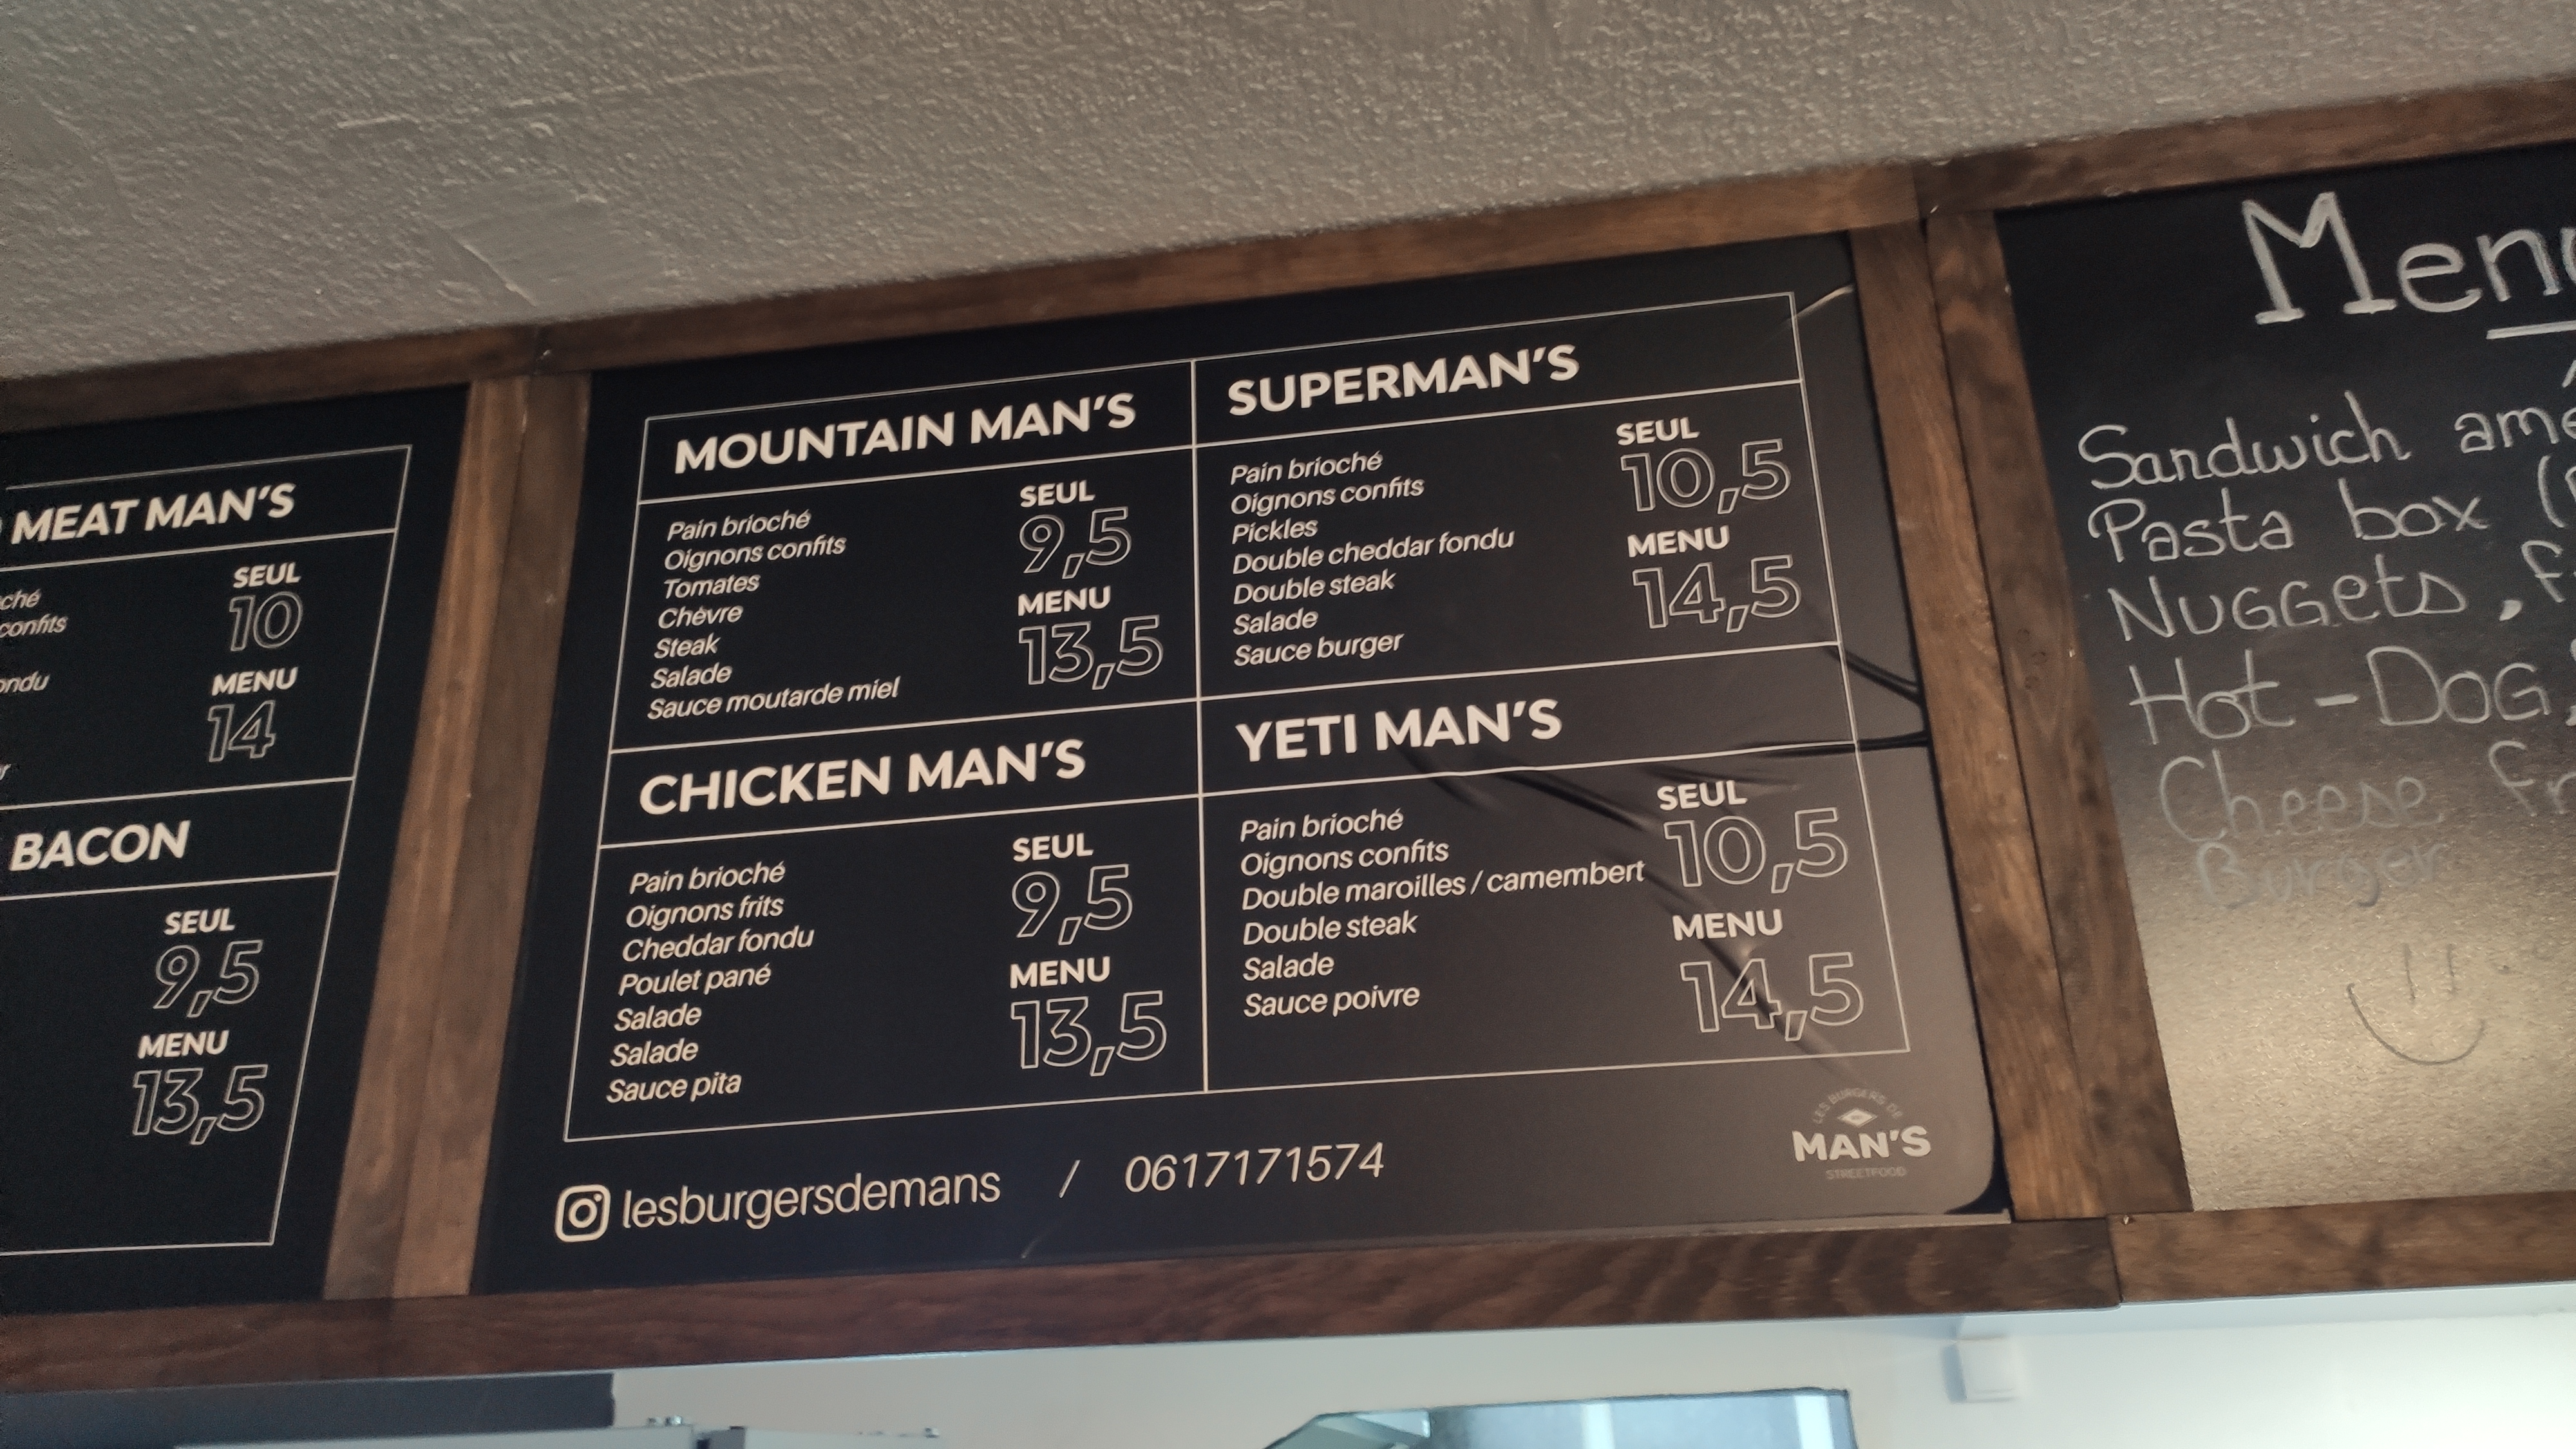 MEAT MAN'S
SEUL
10
confits
MENU
14
BACON
SEUL
9,5
MENU
13,5
MOUNTAIN MAN'S
Pain brioché
Oignons confits
Tomates
Chèvre
Steak
Salade
Sauce moutarde miel
SEUL
9,5
MENU
13,5
SUPERMAN'S
Pain brioché
Oignons confits
Pickles
Double cheddar fondu
Double steak
Salade
Sauce burger
SEUL
10,5
MENU
14,5
CHICKEN MAN'S
Pain brioché
Oignons frits
Cheddar fondu
Poulet pané
Salade
Salade
Sauce pita
SEUL
9,5
MENU
13,5
YETI MAN'S
Pain brioché
Oignons confits
Double maroilles / camembert
Double steak
Salade
Sauce poivre
SEUL
10,5
MENU
14,5
lesburgersdemans / 0617171574
LES BURGERS DE
MAN'S
STREETFOOD
Sandwich
Pasta box
NuGGets,
Hot-DoG
Cheese
Burger